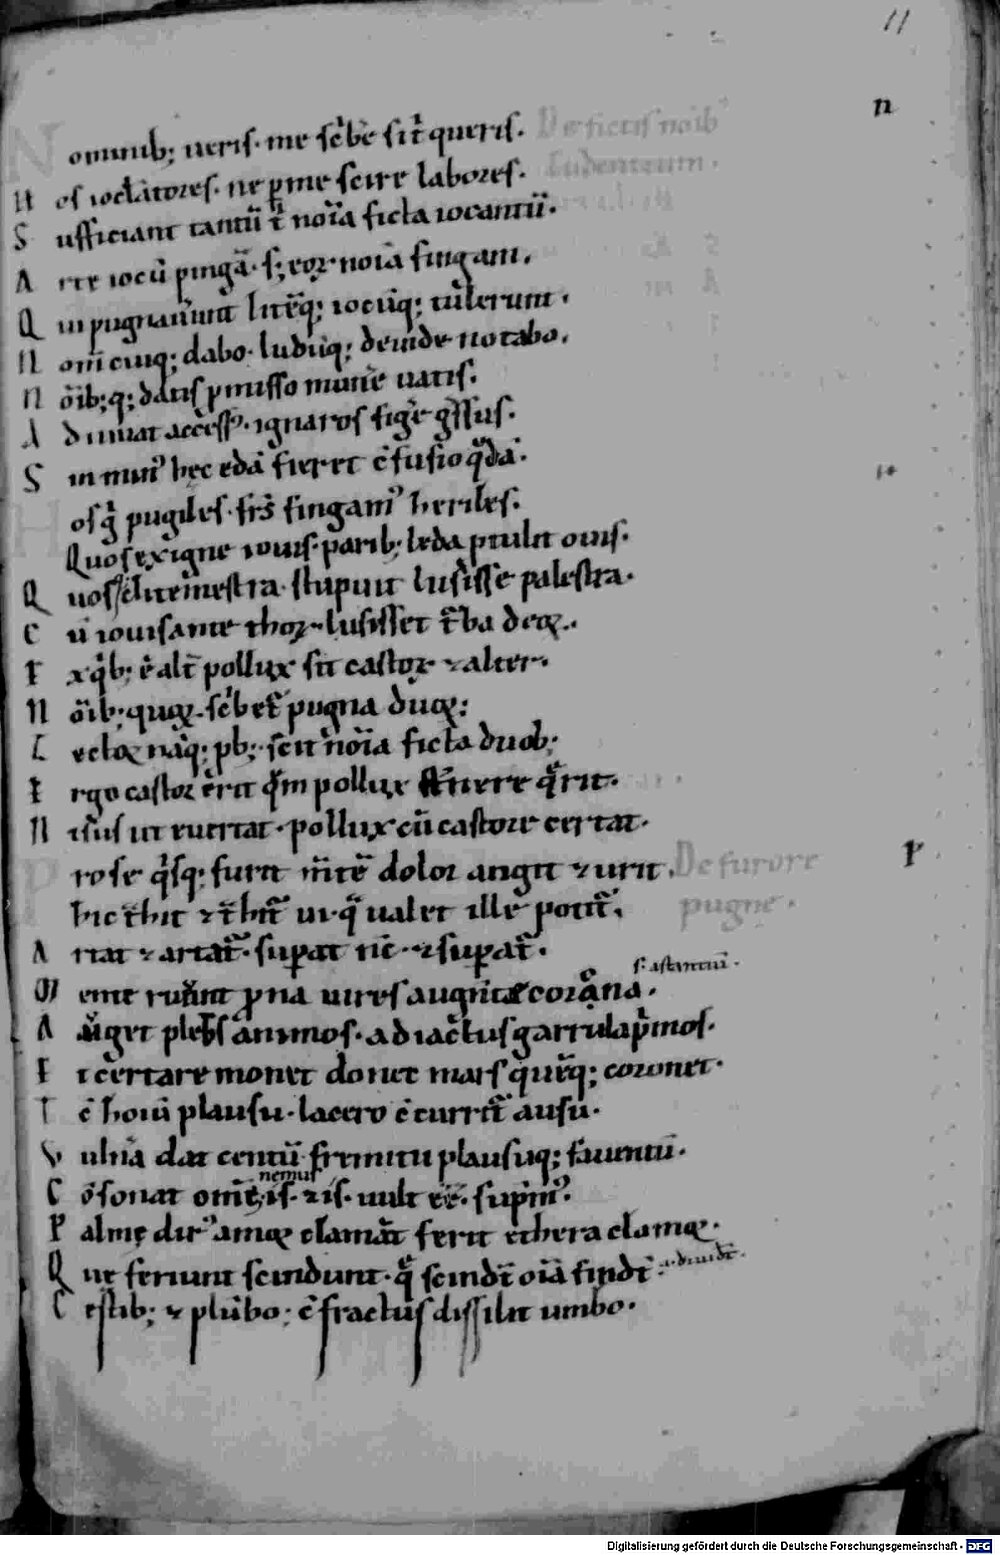 11
n
Nominib; ueris. me sc̍be̅ sit̍ queris. De fictis noib'
Nos ioclatores. ne p me scire labores. Ludentium.
Sufficiant tantu̅ t̅ noi̅a ficta iocantu̅.
Arte iocu̅ pinga̅. s; eoꝝ noi̅a fingam.
Qui pugnauerunt liteq; iocu̅q; tulerunt.
Nom̅ cuiq; dabo. ludu̅q; deinde notabo.
No̅ib;q; datis p̱misso mune̅ uatis.
Adiuuat access'. ignaros fige̅ g̍ssus.
Sin min' hec eda̅ fieret c̅fusio q̅da̅.
Hos g̍ pugiles. frs̅ fingam' heriles.
Quos exigne iouis. parib; leda ptulit ouis.
Quos clitemestra. stupuit lusisse palestra.
Cu̅ iouis ante thoꝝ. lusisset t̍ba deoꝝ.
Ex q̍b; e̍ alt̅ pollux sit castor ⁊ alter.
No̅ib; quoꝝ. sc̍bet̍ pugna duoꝝ.
Lectoꝝ na̅q; pb;. scit noi̅a ficta duob;
Ergo castor erit q̍m pollux st̍nere q̅rit.
Nisus ut euertat. pollux cu̅ castore certat.
Prose q̍sq; furit m̅te̅ dolor angit ⁊ urit. De furore P
hic t̍hit ⁊ t̍hit̍ ui. q̅ ualet ille potit̍. pugne.
Artat ⁊ artat̍. sup̱at nc̅ ⁊ sup̱at̍.
s. astantiu̅.
Mente ruunt prona uires augente corona.
Auget plebs animos. ad iactus garrula p̍mos.
Et certare monet donec mars que̅q; coronet.
Tc̅ houi̅ plausu. lacero c̅currit̍ ausu.
Vulnа̅ dat centu̅ fremitu plausuq; fauentu̅.
nemus
Co̅sonat om̅e. is. ⁊ is. uult ee̅. sup̱im'.
Palme dir' amoꝝ clamat̍ ferit ethera clamoꝝ.
Que feriunt scindunt. q̅ scindt̅ oi̅a findt̅. ⁊ diuidt̅.
Cestib; ⁊ plu̅bo; c̅fractus dissilit umbo.
Digitalisierung gefördert durch die Deutsche Forschungsgemeinschaft - DFG